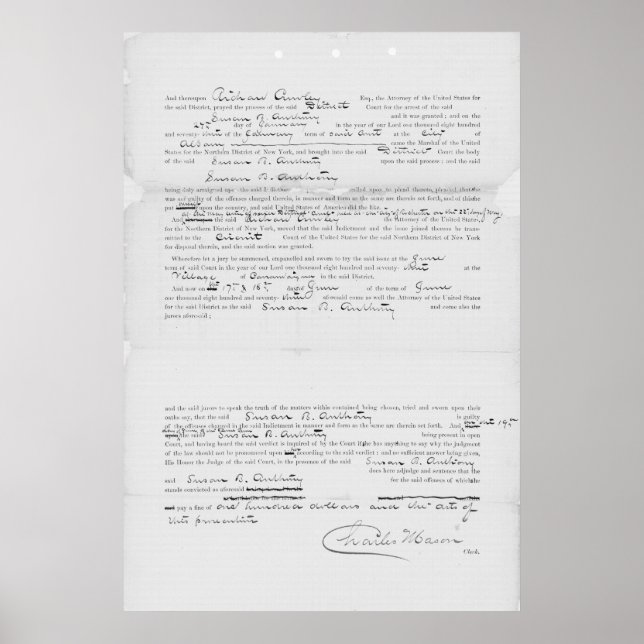 And thereupon Richard Crowley Esq., the Attorney of the United States for
the said District, prayed the process of the said District Court for the arrest of the said
Susan B. Anthony and it was granted; and on the
27th day of January in the year of our Lord one thousand eight hundred
and seventy- three of the January term of said Court at the City of
Albany came the Marshal of the United
States for the Northern District of New York, and brought into the said District Court the body
of the said Susan B. Anthony upon the said process; and the said
Susan B. Anthony
being duly arraigned upon the said Indictment called upon to plead thereto, pleaded that she
was not guilty of the offences charged therein, in manner and form as the same are therein set forth, and of this she
put herself upon the country, and said United States of America did the like.
at the
And the said Richard Crowley the Attorney of the United States,
for the Northern District of New York, moved that the said Indictment and the issue joined thereon be trans-
mitted to the Circuit Court of the United States for the said Northern District of New York
for disposal therein, and the said motion was granted.
Wherefore let a jury be summoned, empanelled and sworn to try the said issue at the June
term of said Court in the year of our Lord one thousand eight hundred and seventy- three at the
Village of Canandaigua in the said District.
And now on the 17th & 18th days of June of the term of June
one thousand eight hundred and seventy- three aforesaid come as well the Attorney of the United States
for the said District as the said Susan B. Anthony and come also the
jurors aforesaid;
and the said jurors to speak the truth of the matters within contained being chosen, tried and sworn upon their
oaths say, that the said Susan B. Anthony is guilty
of the offences charged in the said Indictment in manner and form as the same are therein set forth. And on the 19th
day of June
the said Susan B. Anthony being present in open
Court, and having heard the said verdict is inquired of by the Court if she has anything to say why the judgment
of the law should not be pronounced upon her according to the said verdict: and no sufficient answer being given,
His Honor the Judge of the said Court, in the presence of the said Susan B. Anthony
does here adjudge and sentence that the
said Susan B. Anthony for the said offenses of which she
stands convicted as aforesaid
pay a fine of one hundred dollars and the costs of
this prosecution
Charles Mason
Clerk.